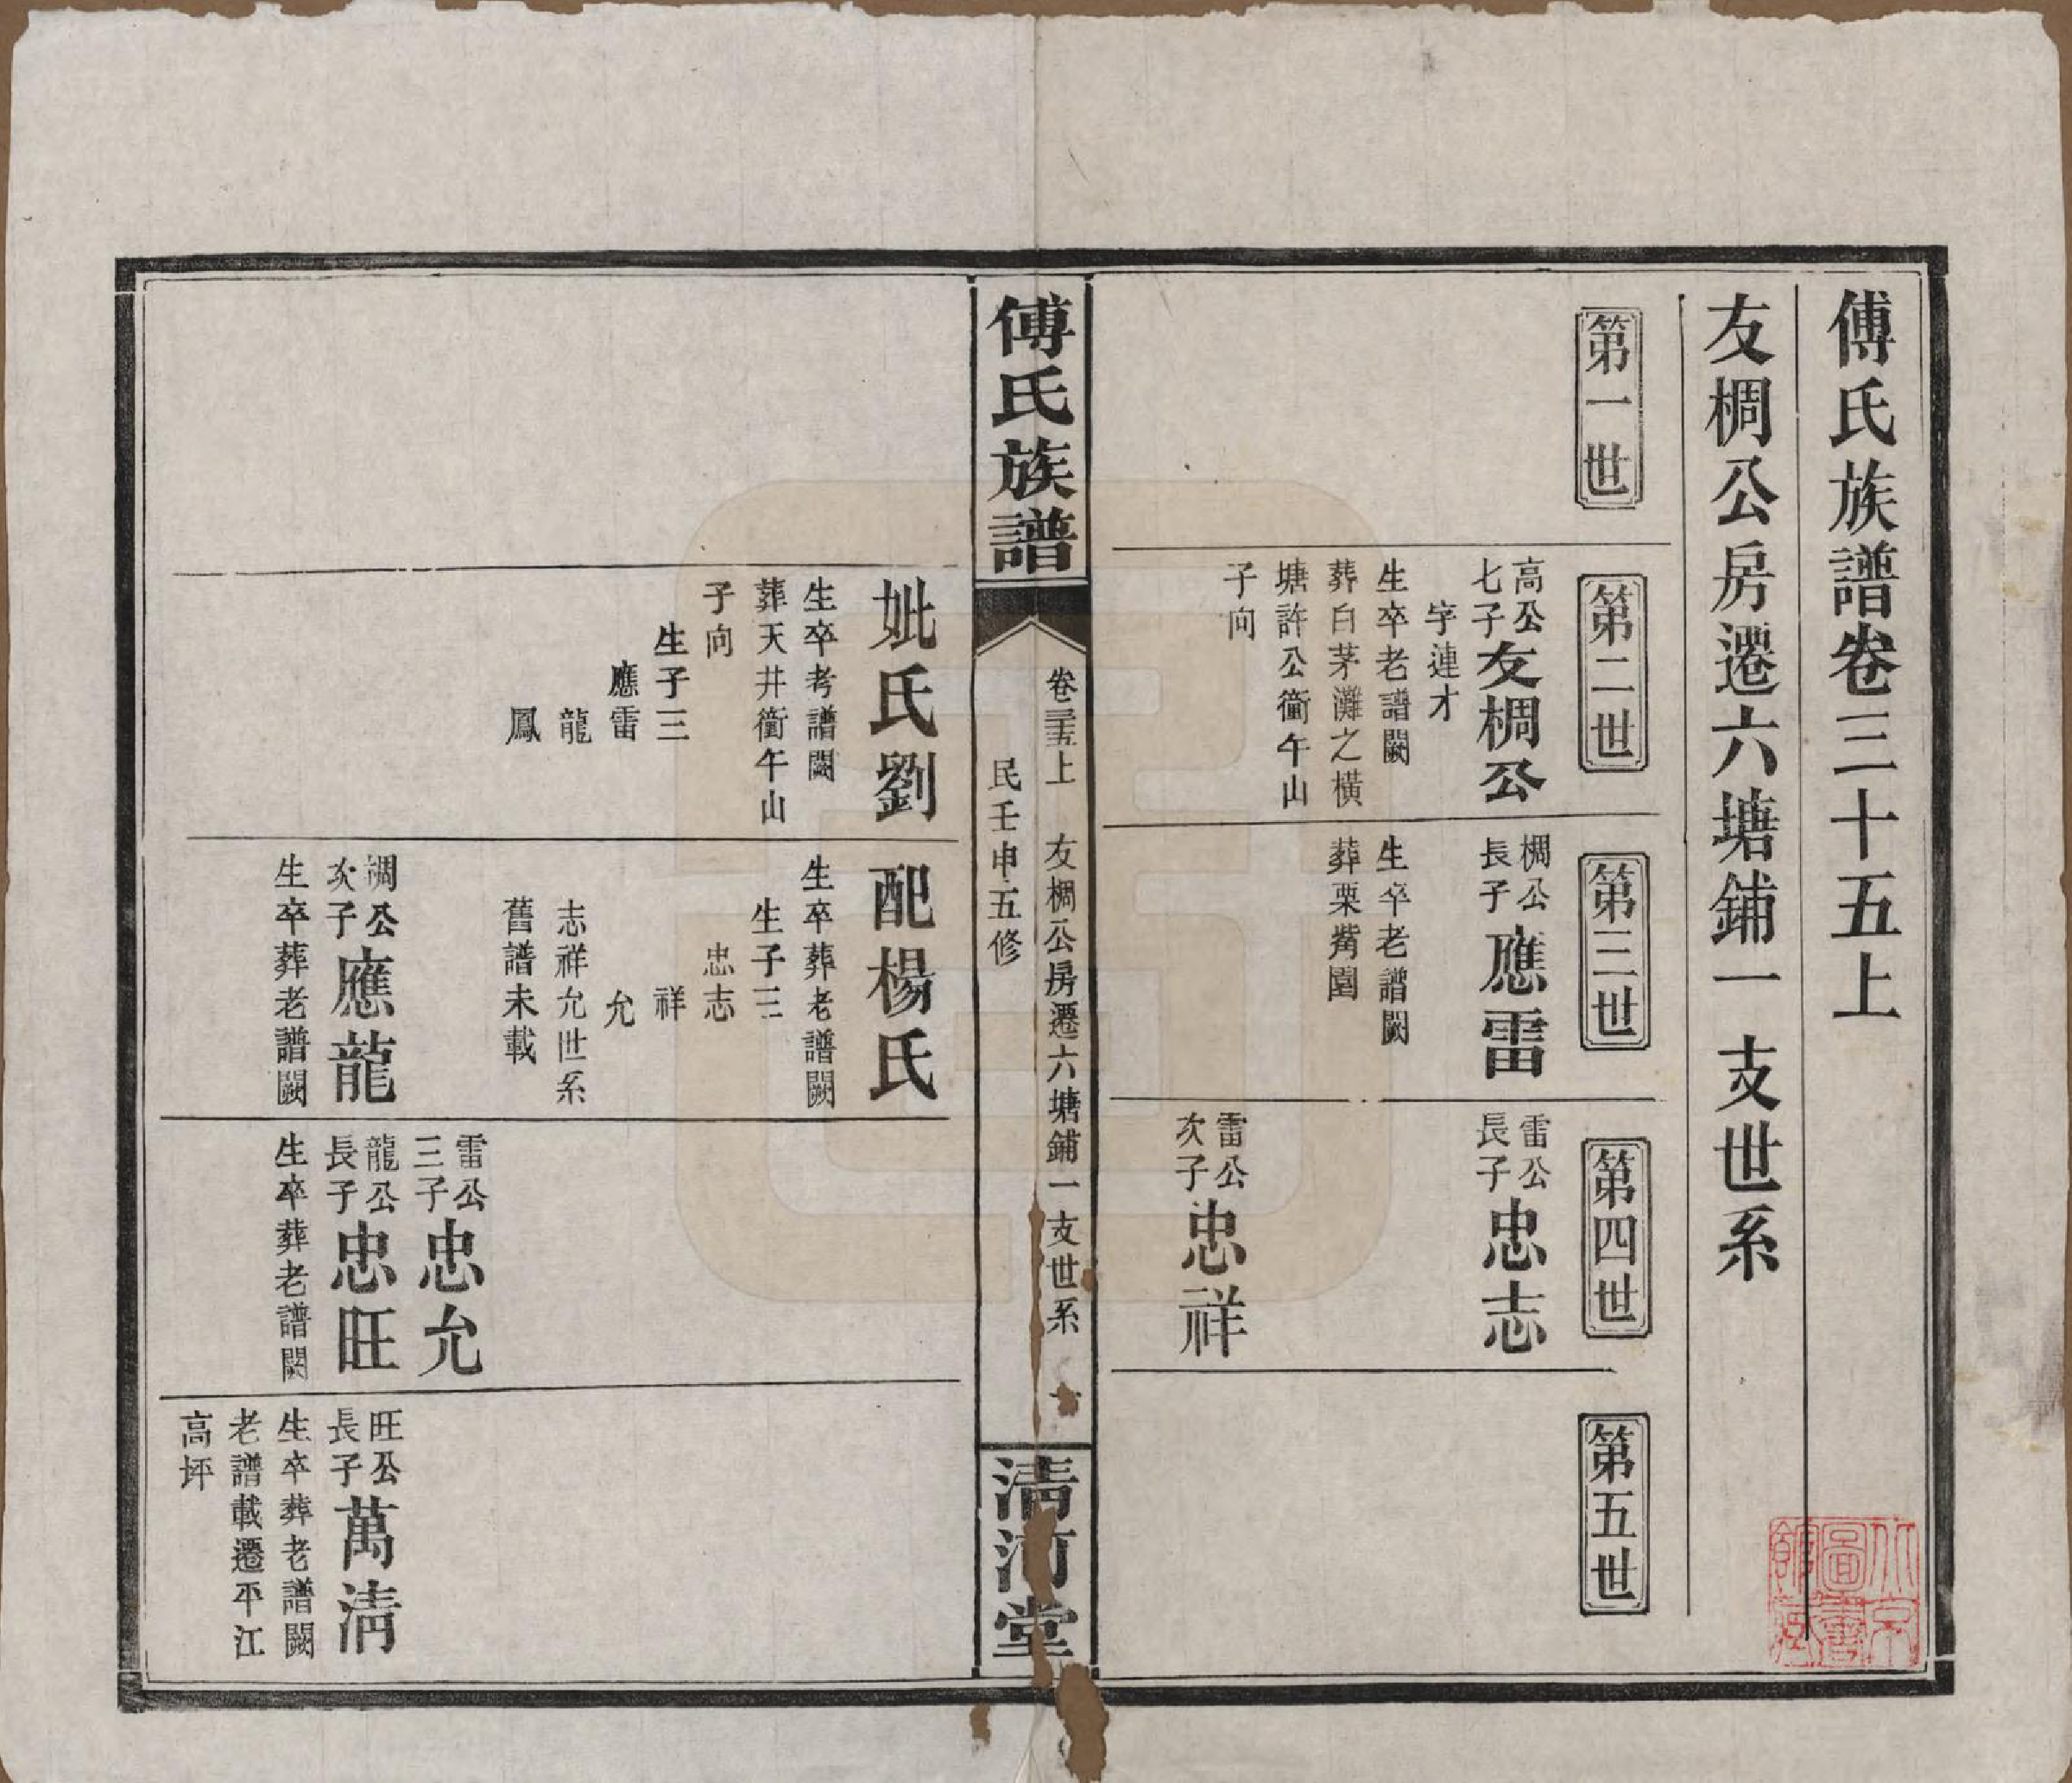 傅氏族譜卷三十五上
友棡公房遷六塘鋪一支世系
第一世
第二世
第三世
第四世
第五世
高公
七子
友棡公
字連才
生卒老譜闕
葬白茅灘之橫
塘許公衝午山
子向
棡公
長子
應雷
生卒老譜闕
葬栗觜園
雷公
長子
忠志
雷公
次子
忠祥
傅氏族譜
卷三十五上
友棡公房遷六塘鋪一支世系
一
民壬申五修
淸河堂
妣氏劉
生卒考譜闕
葬天井衝午山
子向
生子三
應雷
龍
鳳
配楊氏
生卒葬老譜闕
生子三
忠志
祥
允
志祥允世系
舊譜未載
棡公
次子
應龍
生卒葬老譜闕
雷公
三子
忠允
龍公
長子
忠旺
生卒葬老譜闕
旺公
長子
萬淸
生卒葬老譜闕
老譜載遷平江
高坪
北京
圖書
館藏